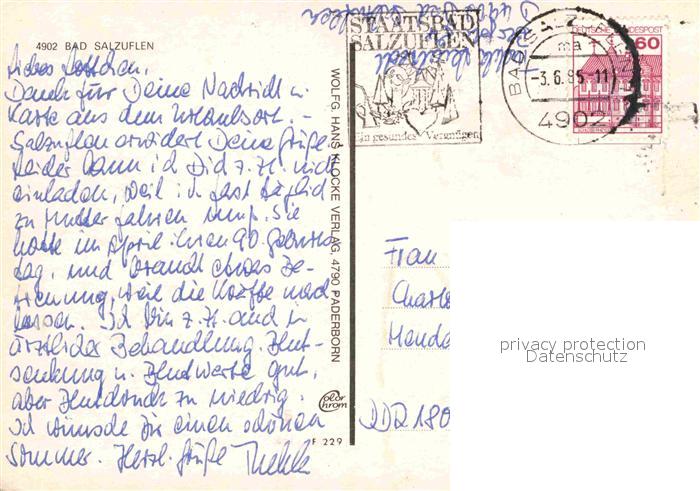 4902 BAD SALZUFLEN
Liebes Lottchen,
Dank für Deine Nachricht u.
Karte aus dem Urlaubsort. -
Salzuflen erwidert Deine Grüße.
Leider kann ich Dich z. Zt. nicht
einladen, weil ich fast täglich
zu Mutter fahren muß. Sie
hatte im April ihren 90. Geburts-
tag, und braucht etwas Be-
treuung, weil die Kräfte nach
lassen. Ich bin z. Zt. auch in
ärztlicher Behandlung. Blut-
senkung u. Blutwerte gut,
aber Blutdruck zu niedrig.
Ich wünsche Dir einen schönen
Sommer. Herzl. Grüße Thekla
WOLFG. HANS KLOCKE VERLAG, 4790 PADERBORN
Color
Chrom
F 229
STAATSBAD
SALZUFLEN
Ein gesundes Vergnügen
BAD SALZ
ma
-3.6.85-11
4902
DEUTSCHE BUNDESPOST
60
Frau
Charlo
Hende
DDR 180
privacy protection
Datenschutz